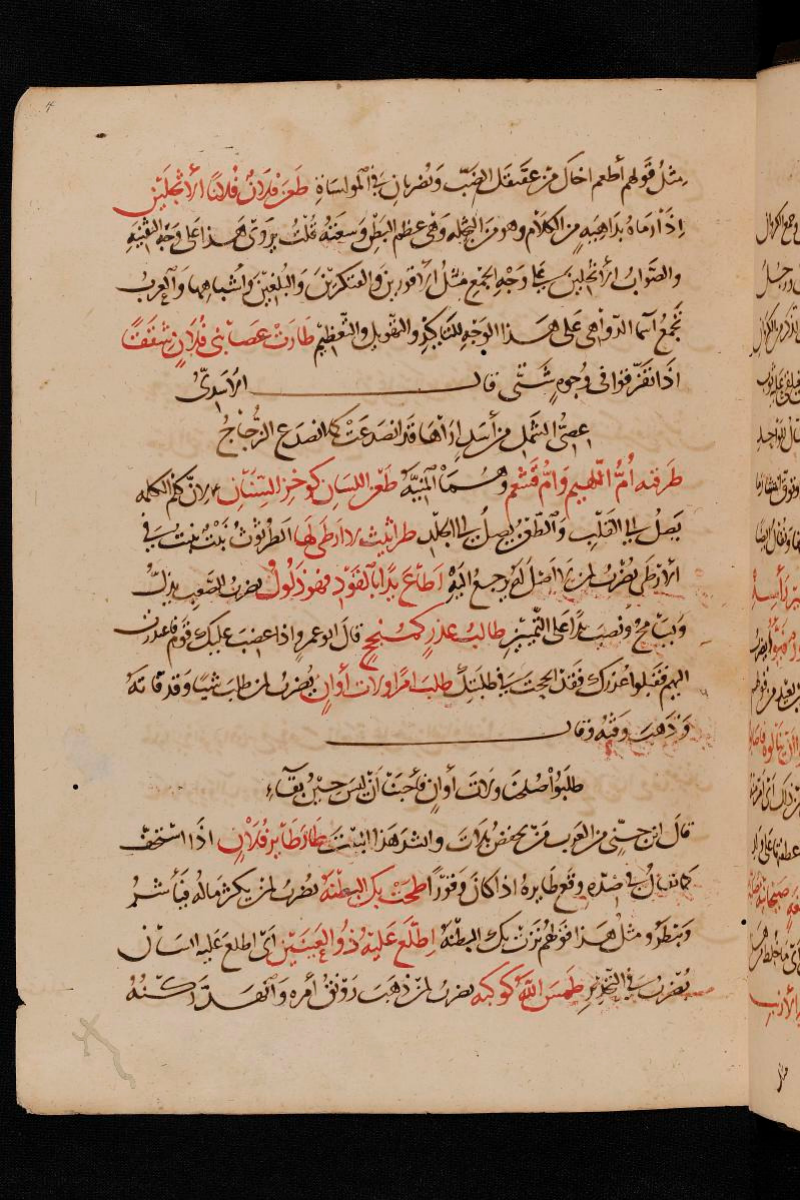 مثل قولهم أطعم اخاك من عقنقل الضب ويضربان في المواساة طعن فلان فلانا الأثجلين
اذا رماه بداهية من الكلام وهو من الثجلة وهي عظم البطن وسعته قلت يروى هذا على وجه التثنية
والصواب الأثجلين على وجه الجمع مثل الأقورين والفتكرين والبلغين واشباهها والعرب
تجمع اسما الدواهي على هذا الوجه للتاكيد والتهويل والتعظيم طارت عصا بني فلان شققا
اذا تفرقوا في وجوه شتى قال الاسدي
عصي الشمل من أسد اراها قد انصدعت كما انصدع الزجاج
طرقته أم اللهيم وأم قشعم وهما المنية طعن اللسان كوخز السنان لان كلم الكلمة
يصل الى القلب والطعن يصل الى الجلد طراثيث لا ارطى لها الطرثوث نبت ينبت في
الارطى يضرب لمن لا اصل له يرجع اليه اطاع يدا بالقود فهو ذلول يضرب للصعب يذل
ويسامح ونصب يدا على التمييز طالب عذر كمنجح قال ابو عمرو اذا غضب عليك قوم فاعتذرت
اليهم فقبلوا عذرك فقد انجحت في طلبتك طلب امرا ولات أوان يضرب لمن طلب شيئا وقد فاته
وذهب وقته وقال
طلبوا صلحنا ولات أوان فأجبنا أن ليس حين بقاء
قال ابن جني من العرب من يخفض بلات وانشد هذا البيت طار طاير فلان اذا استخف
كما يقال في ضده وقع طايره اذا كان وقورا طمحت بك البطنة يضرب لمن يكثر ماله فيأشر
ويبطر ومثل هذا قولهم نزت بك البطنة اطلع عليه ذو العينين أي اطلع عليه انسان
يضرب في التحذير طمس الله كوكبه يضرب لمن ذهب رونق أمره وانهد ركنه